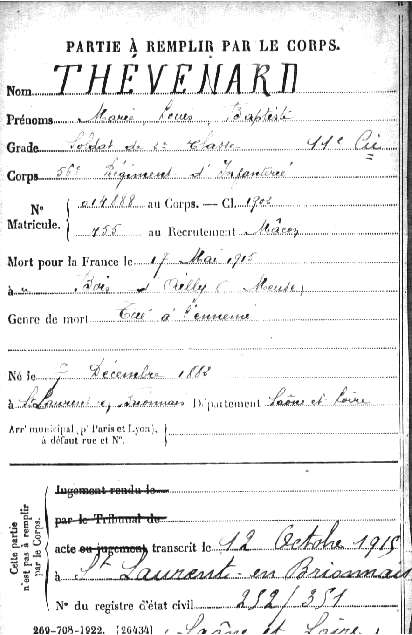 PARTIE À REMPLIR PAR LE CORPS.
Nom THÉVENARD
Prénoms Marie Louis, Baptiste
Grade Soldat de 2e Classe 11e Cie
Corps 56e Régiment d'Infanterie
N° Matricule. 014888 au Corps. — Cl. 1902
755 au Recrutement Mâcon
Mort pour la France le 17 Mai 1915
à Bois d'Ailly (Meuse)
Genre de mort Tué à l'ennemi
Né le 7 Décembre 1882
à St Laurent en Brionnais Département Saône et Loire
Arrt municipal (pr Paris et Lyon), à défaut rue et N°.
Cette partie n'est pas à remplir par le Corps.
Jugement rendu le
par le Tribunal de
acte ou jugement transcrit le 12 Octobre 1915
à St Laurent-en Brionnais
N° du registre d'état civil 252/351
269-708-1922. [26434] Saône et Loire